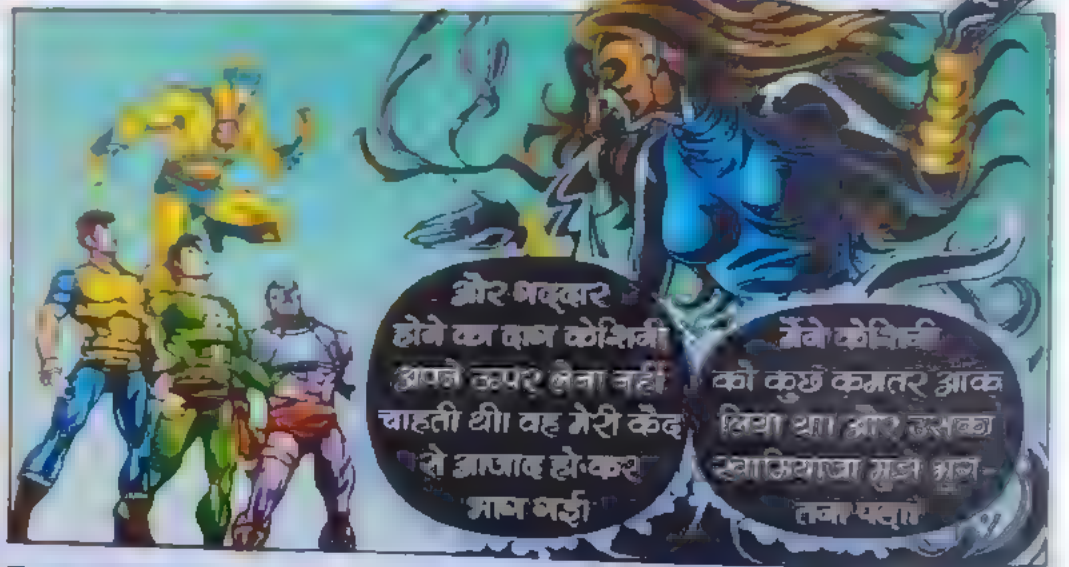 और गद्दार
होने का दाग केशिनी
अपने ऊपर लेना नहीं
चाहती थी। वह मेरी कैद
से आजाद होकर
भाग गई!
मैंने केशिनी
को कुछ कमतर आंक
लिया था। और उसका
खामियाजा मुझे भुग-
तना पड़ा!